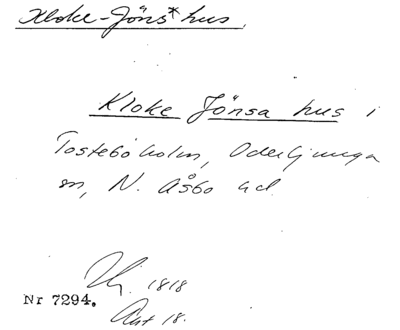 Kloke-Jöns* hus.
Kloke Jönsa hus i
Tosteboholm, Oderljunga
sn, N. Åsbo hd
1818
Nr 7294.
Akt 18.